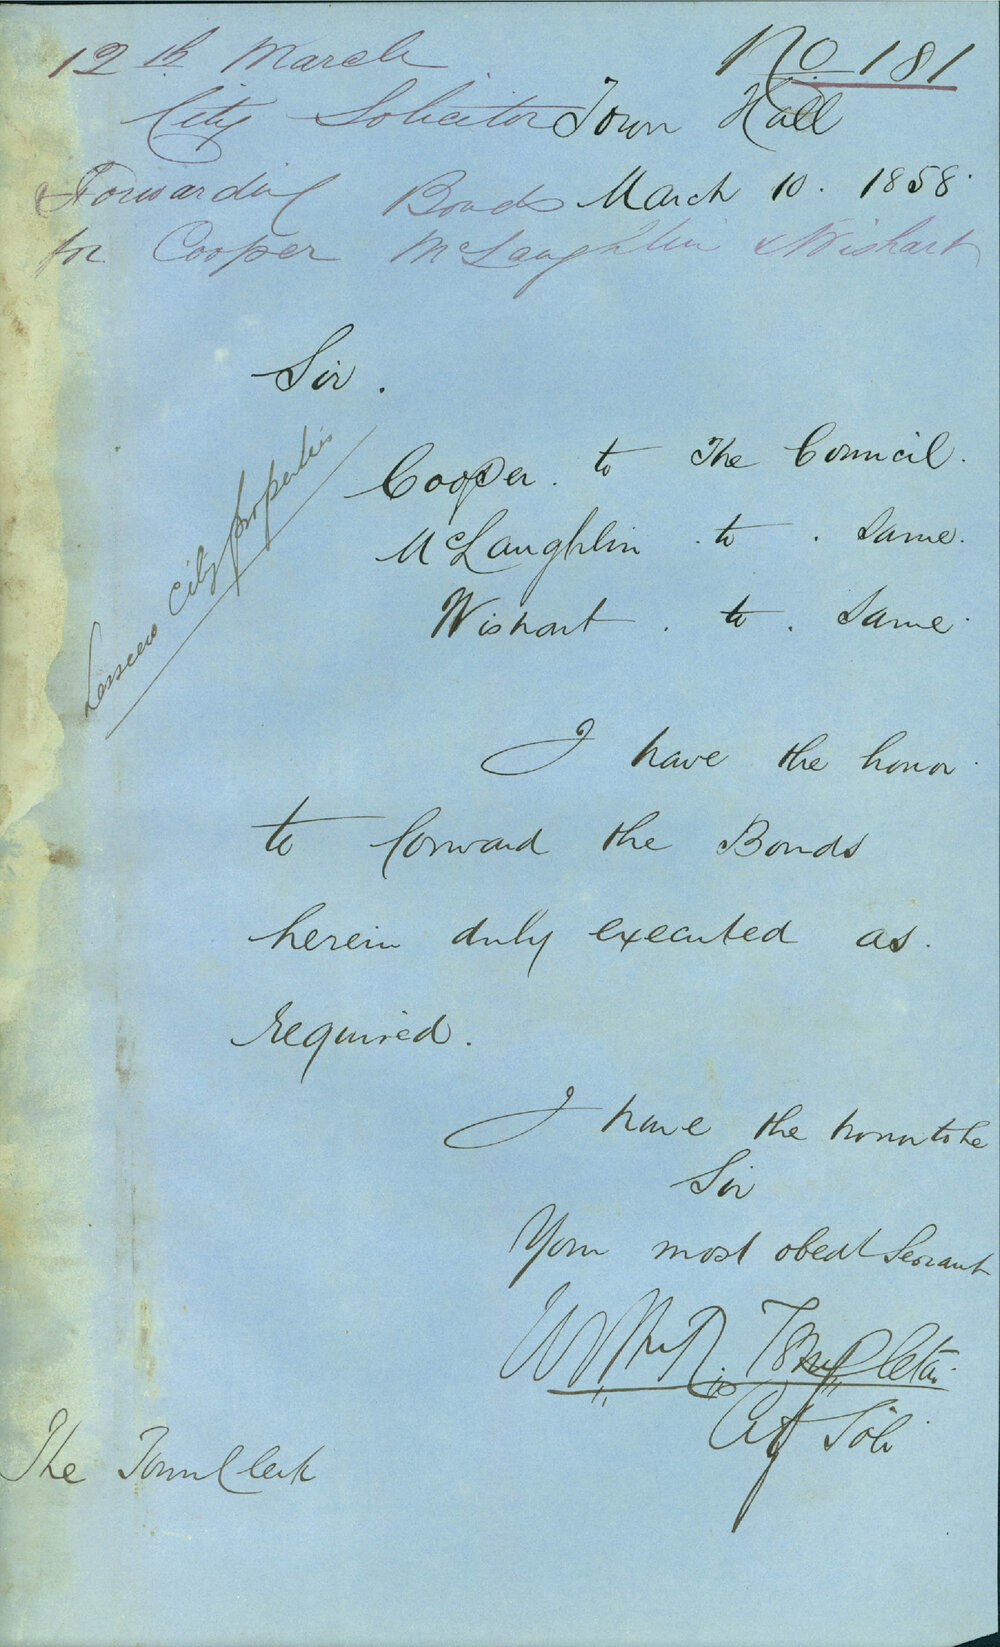 12th March
No 181
City Solicitor
Town Hall
Forwarding Bonds
March 10. 1858.
for Cooper McLaughlin & Wishart
Sir.
Lessees City properties
Cooper. to The Council.
McLaughlin . to . Same.
Wishart . to . Same.
I have the honor
to forward the Bonds
herein duly executed as.
required.
I have the honor to be
Sir
Your most obedt Servant
Templeton
City Soli
The Town Clerk